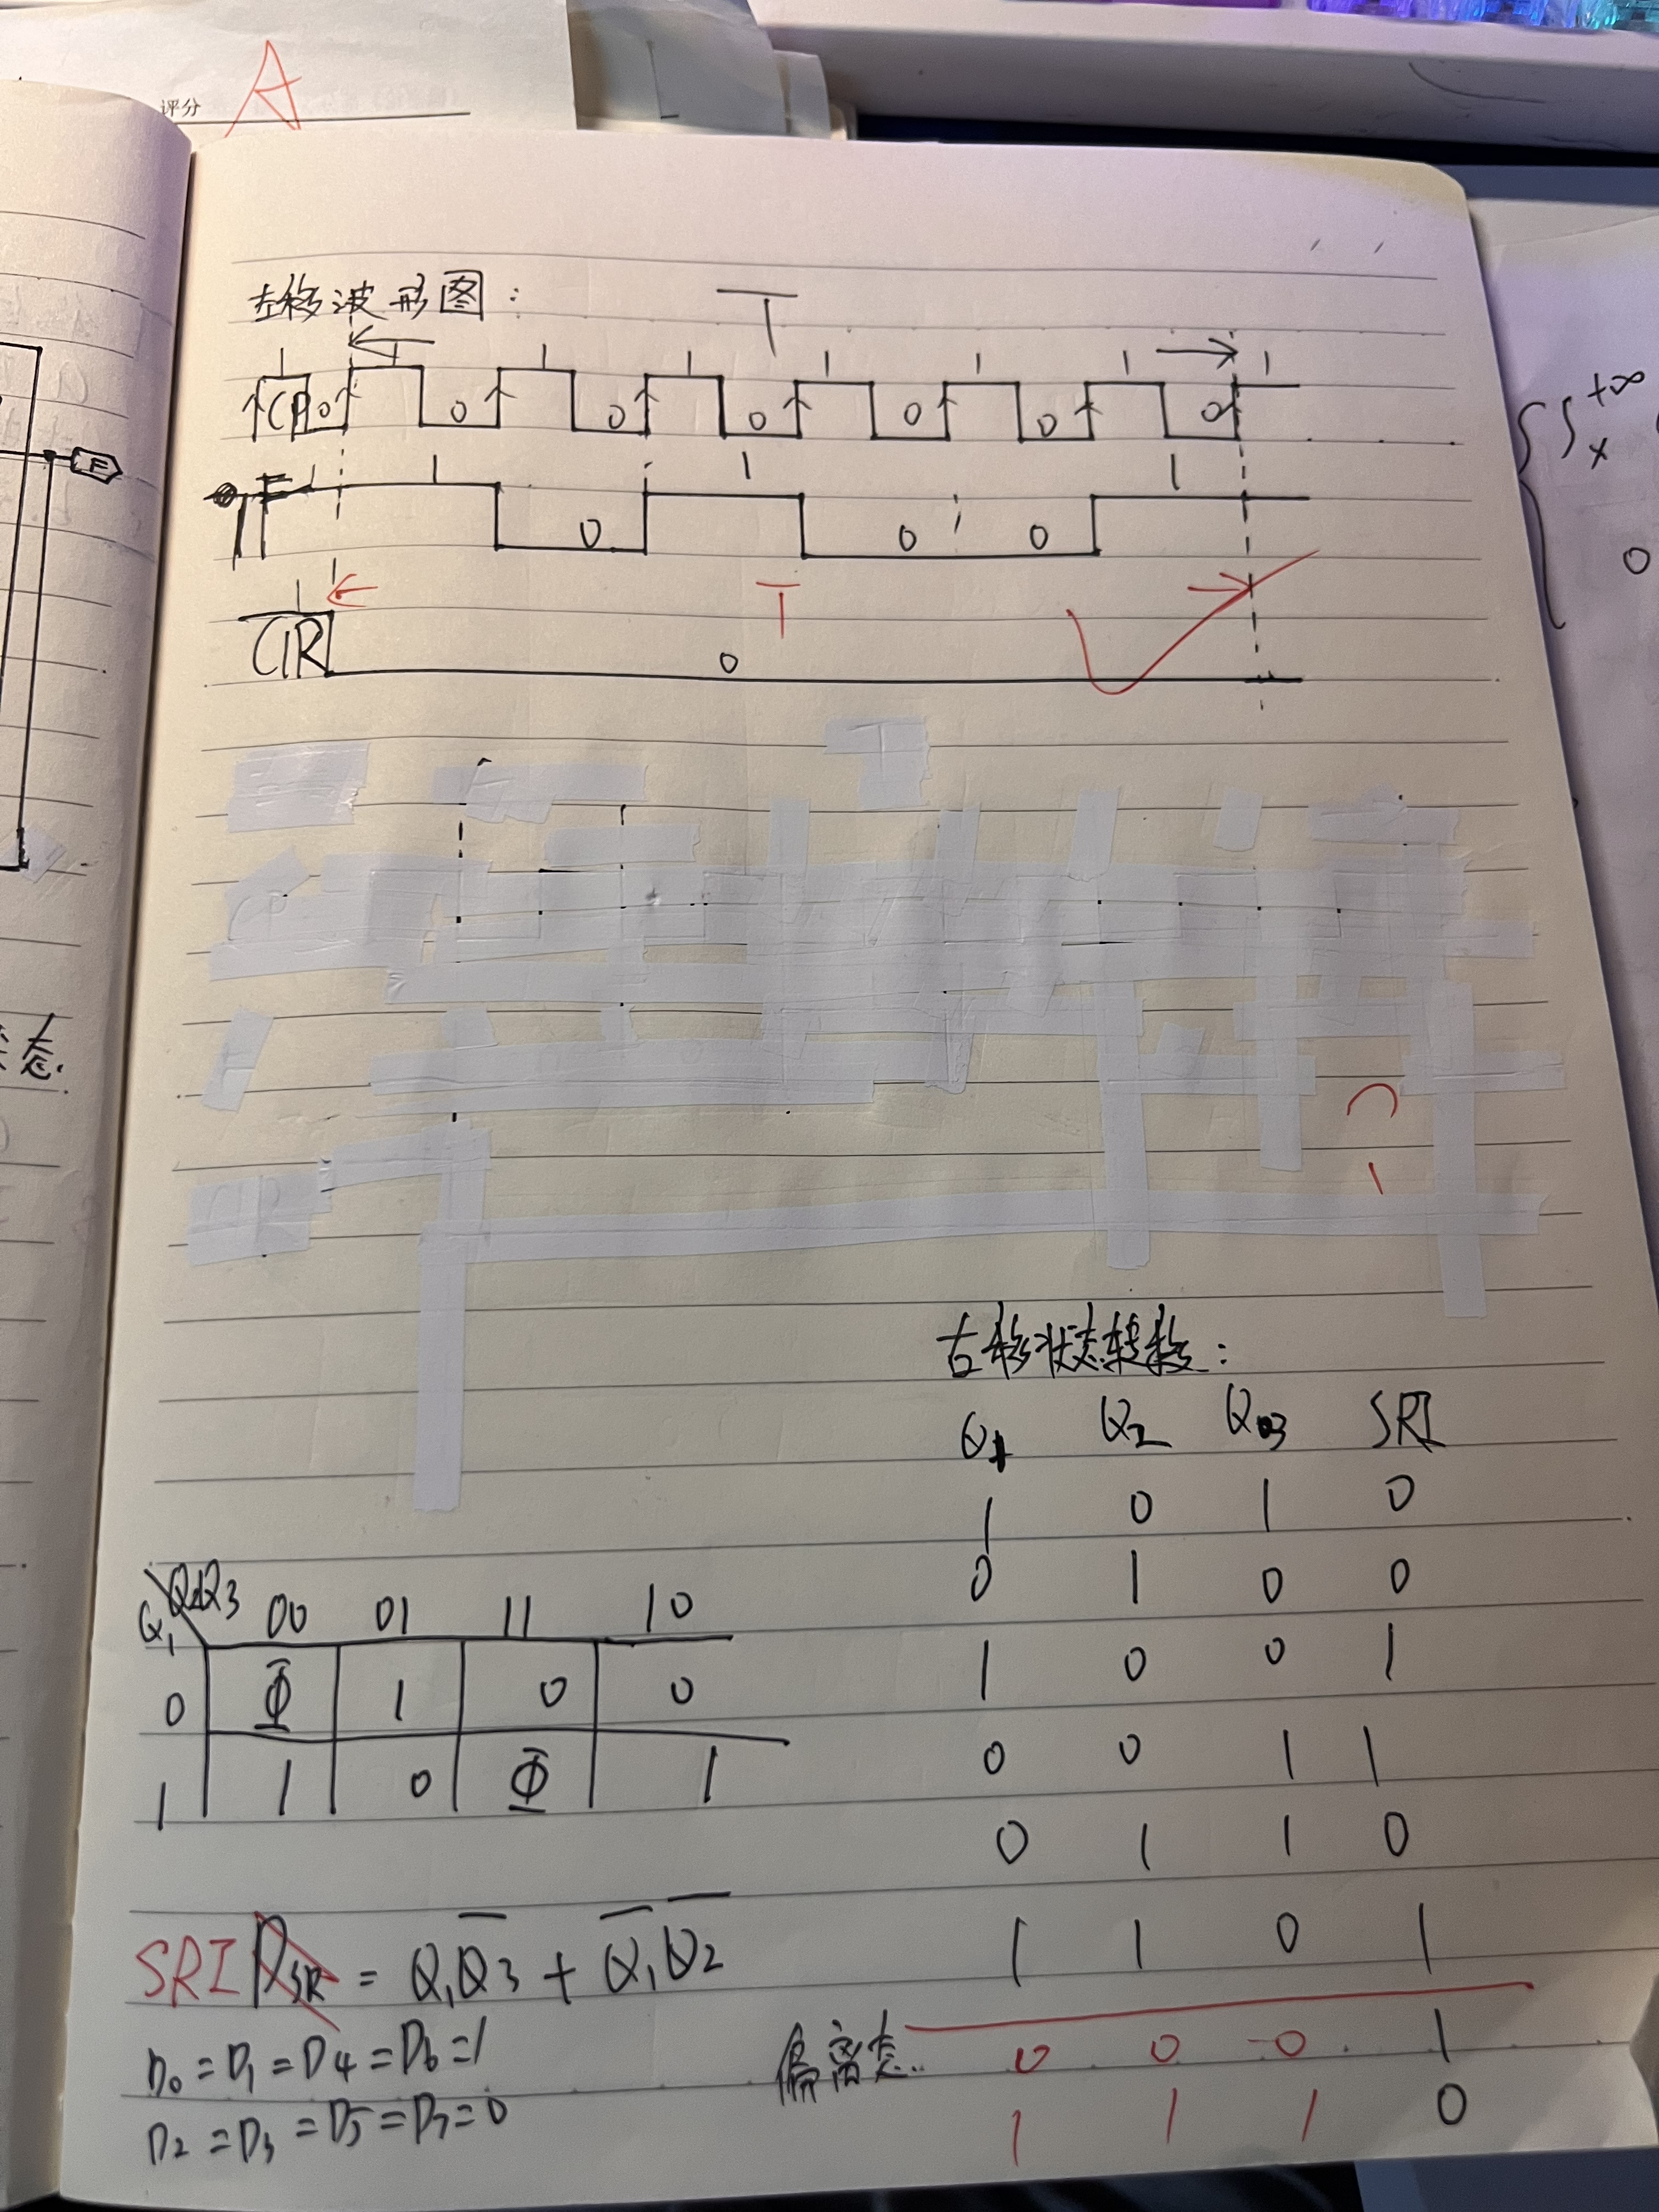 评分 A
左移波形图：
T
1 1 1 1 1 1 1 1
CP 0 0 0 0 0 0 0
F 1 1 0 1 0 0 1
F
1 T
CIR 0
+∞
∫ x
0
态.
右移状态转移：
Q1 Q2 Q3 SRI
1 0 1 0
0 1 0 0
1 0 0 1
0 0 1 1
0 1 1 0
1 1 0 1
偏离态.. 0 0 0 1
1 1 1 0
Q2Q3 00 01 11 10
Q1
0 Φ 1 0 0
1 1 0 Φ 1
SRI DSR = Q1Q̅3 + Q̅1Q̅2
D0 = D1 = D4 = D6 = 1
D2 = D3 = D5 = D7 = 0